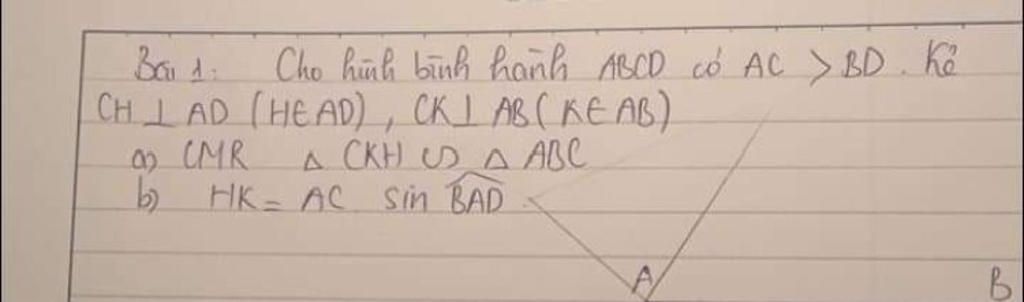 Bài 1: Cho hình bình hành ABCD có AC > BD. Kẻ
CH ⊥ AD (H∈AD), CK ⊥ AB (K∈AB)
a) CMR △ CKH ∽ △ ABC
b) HK = AC sin \widehat{BAD}
A B